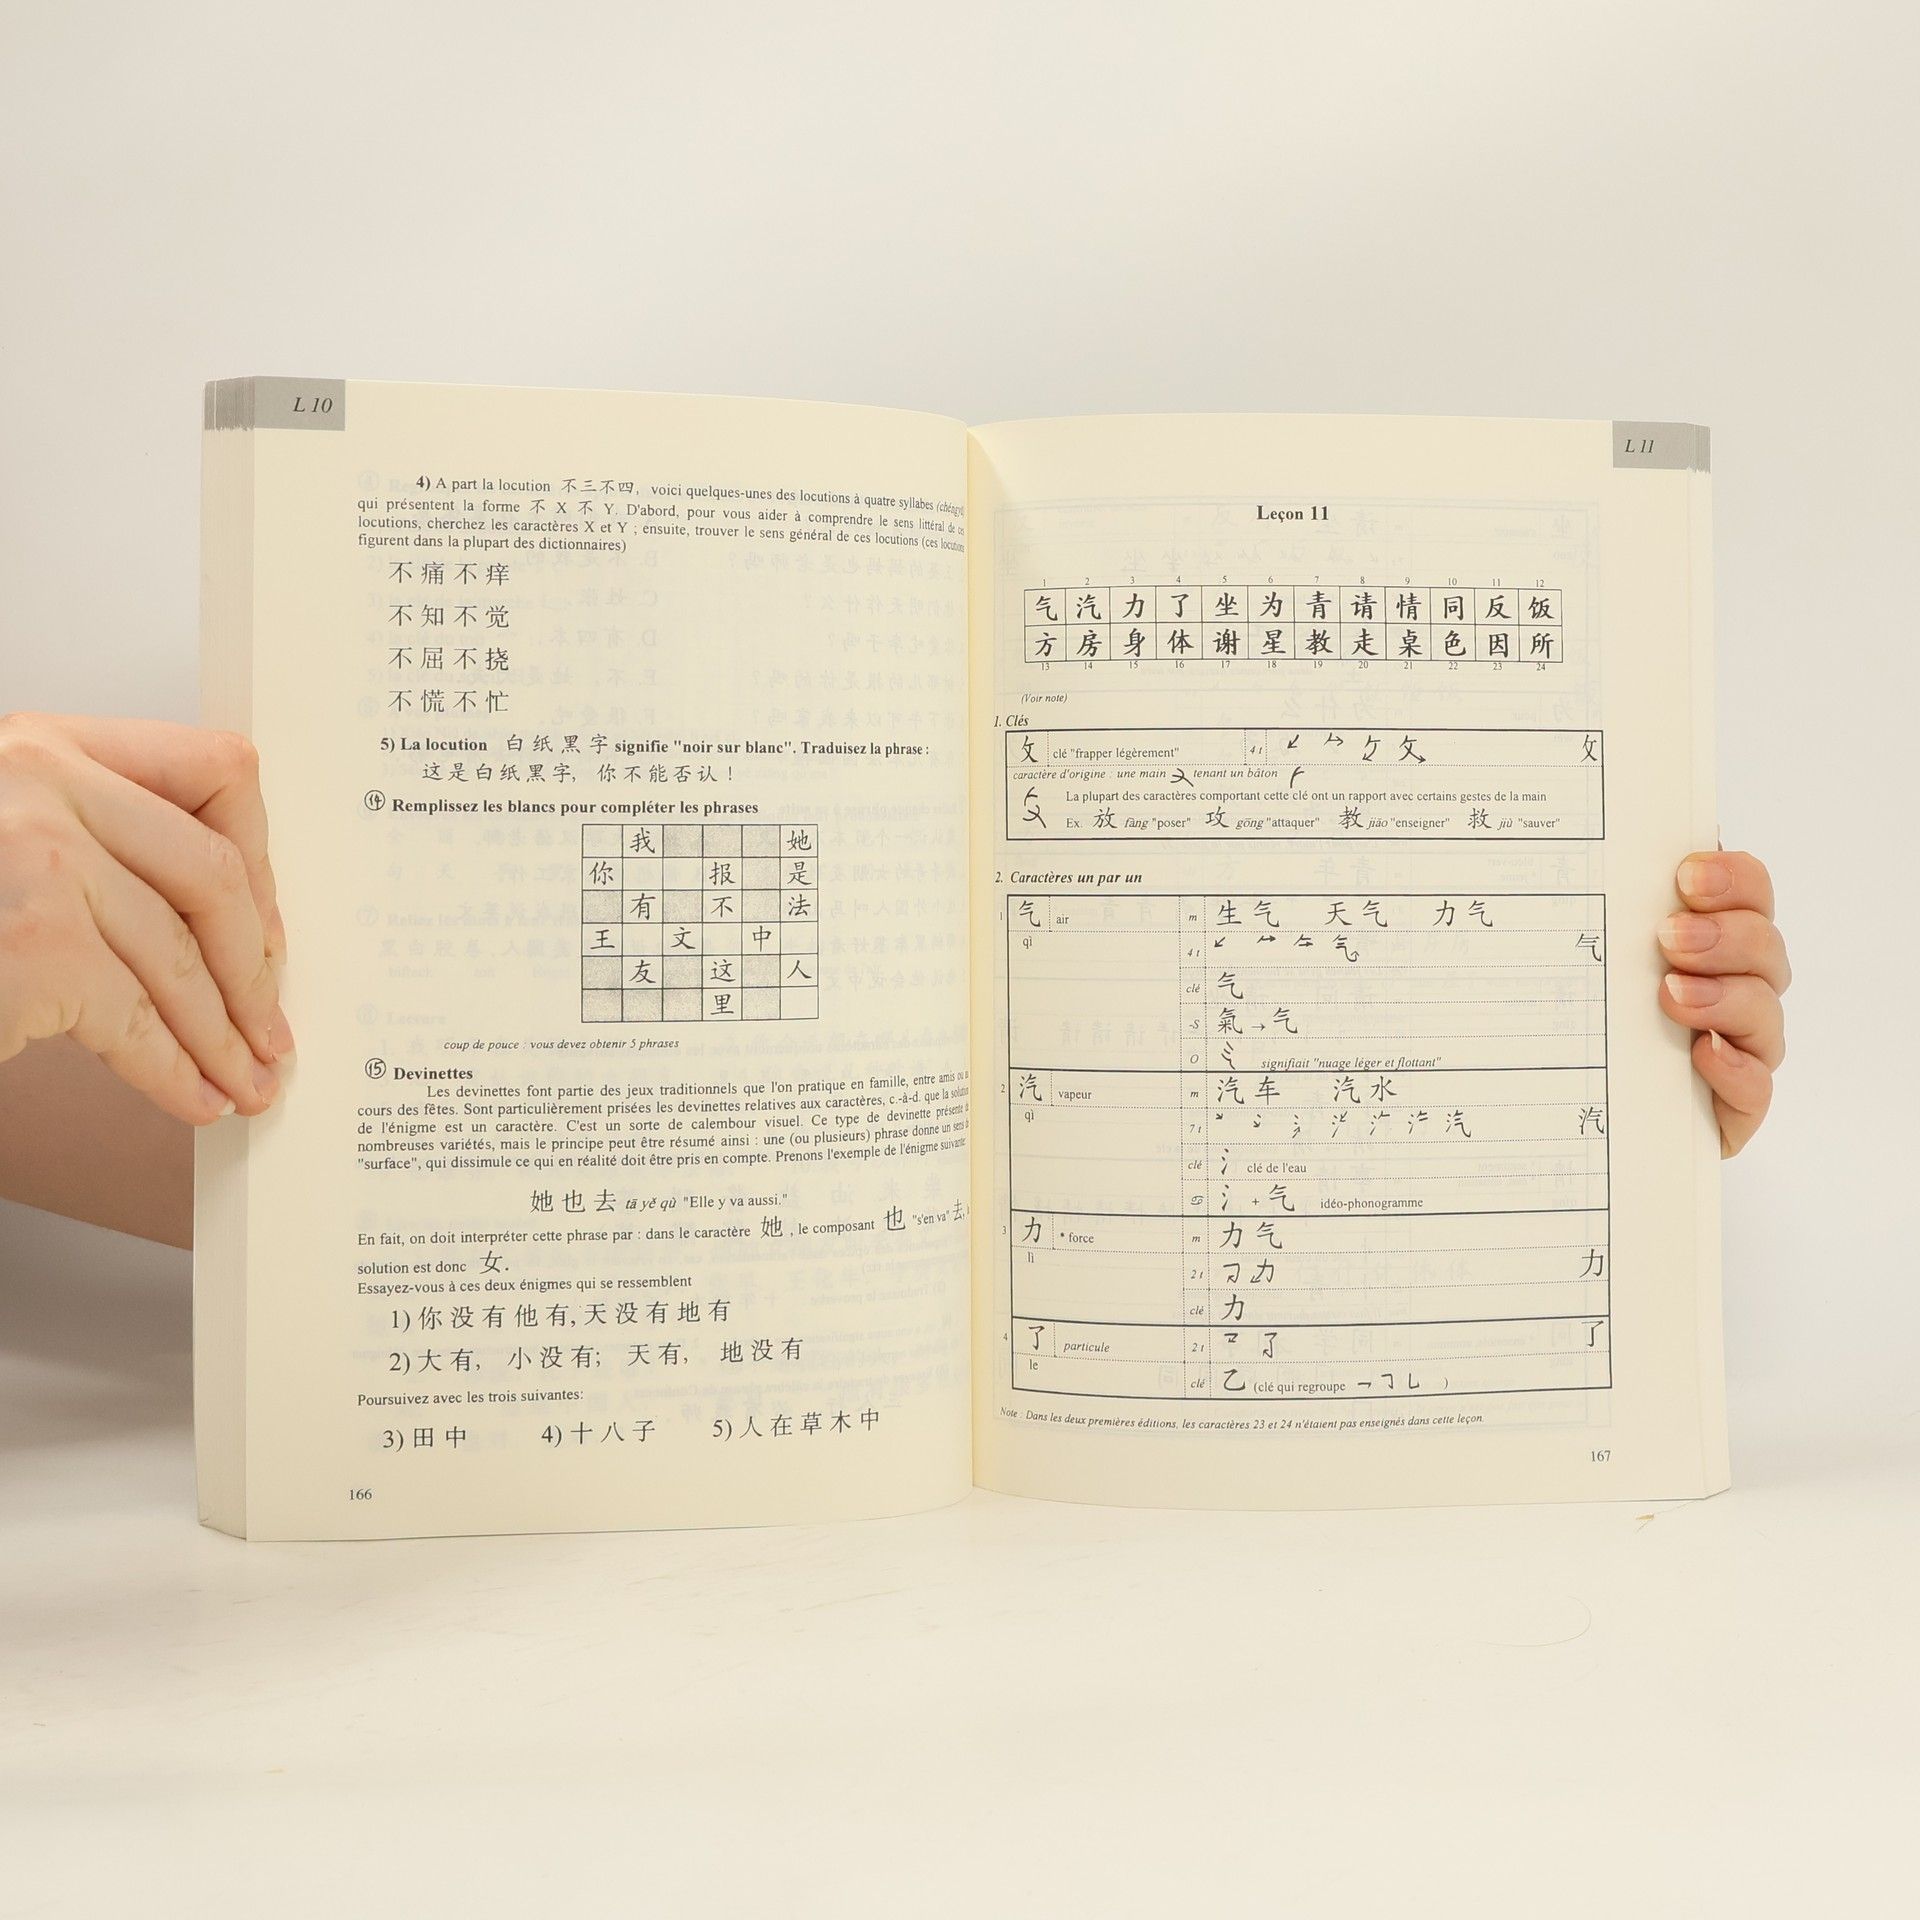 L 10
4) A part la locution 不三不四, voici quelques-unes des locutions à quatre syllabes (chéngyǔ)
qui présentent la forme 不 X 不 Y. D'abord, pour vous aider à comprendre le sens littéral de ces
locutions, cherchez les caractères X et Y ; ensuite, trouver le sens général de ces locutions (ces locutions
figurent dans la plupart des dictionnaires)
不痛不痒
不知不觉
不屈不挠
不慌不忙
5) La locution 白纸黑字 signifie "noir sur blanc". Traduisez la phrase :
这是白纸黑字, 你不能否认！
⑭ Remplissez les blancs pour compléter les phrases
我 她
你 报 是
有 不 法
王 文 中
友 这 人
里
coup de pouce : vous devez obtenir 5 phrases
⑮ Devinettes
Les devinettes font partie des jeux traditionnels que l'on pratique en famille, entre amis ou
cours des fêtes. Sont particulièrement prisées les devinettes relatives aux caractères, c.-à-d. que la solution
de l'énigme est un caractère. C'est un sorte de calembour visuel. Ce type de devinette présente de
nombreuses variétés, mais le principe peut être résumé ainsi : une (ou plusieurs) phrase donne un sens de
"surface", qui dissimule ce qui en réalité doit être pris en compte. Prenons l'exemple de l'énigme suivante:
她也去 tā yě qù "Elle y va aussi."
En fait, on doit interpréter cette phrase par : dans le caractère 她, le composant 也 "s'en va" 去,
solution est donc 女.
Essayez-vous à ces deux énigmes qui se ressemblent
1) 你没有他有, 天没有地有
2) 大有, 小没有; 天有, 地没有
Poursuivez avec les trois suivantes:
3) 田中 4) 十八子 5) 人在草木中
166
L 11
Leçon 11
1 2 3 4 5 6 7 8 9 10 11 12
气 汽 力 了 坐 为 青 请 情 同 反 饭
方 房 身 体 谢 星 教 走 桌 色 因 所
13 14 15 16 17 18 19 20 21 22 23 24
(Voir note)
1. Clés
攵 clé "frapper légèrement" 4 t 攵 攵
caractère d'origine : une main tenant un bâton
La plupart des caractères comportant cette clé ont un rapport avec certains gestes de la main
Ex. 放 fàng "poser" 攻 gōng "attaquer" 教 jiāo "enseigner" 救 jiù "sauver"
2. Caractères un par un
1 气 air m 生气 天气 力气
qì 4 t 气 气
clé 气
-S 氣 → 气
O signifiait "nuage léger et flottant"
2 汽 vapeur m 汽车 汽水
qì 7 t 汽 汽
clé 氵 clé de l'eau
氵 + 气 idéo-phonogramme
3 力 * force m 力气
lì 2 t 力 力
clé 力
4 了 particule 2 t 了 了
le clé 乙 (clé qui regroupe )
Note : Dans les deux premières éditions, les caractères 23 et 24 n'étaient pas enseignés dans cette leçon.
167